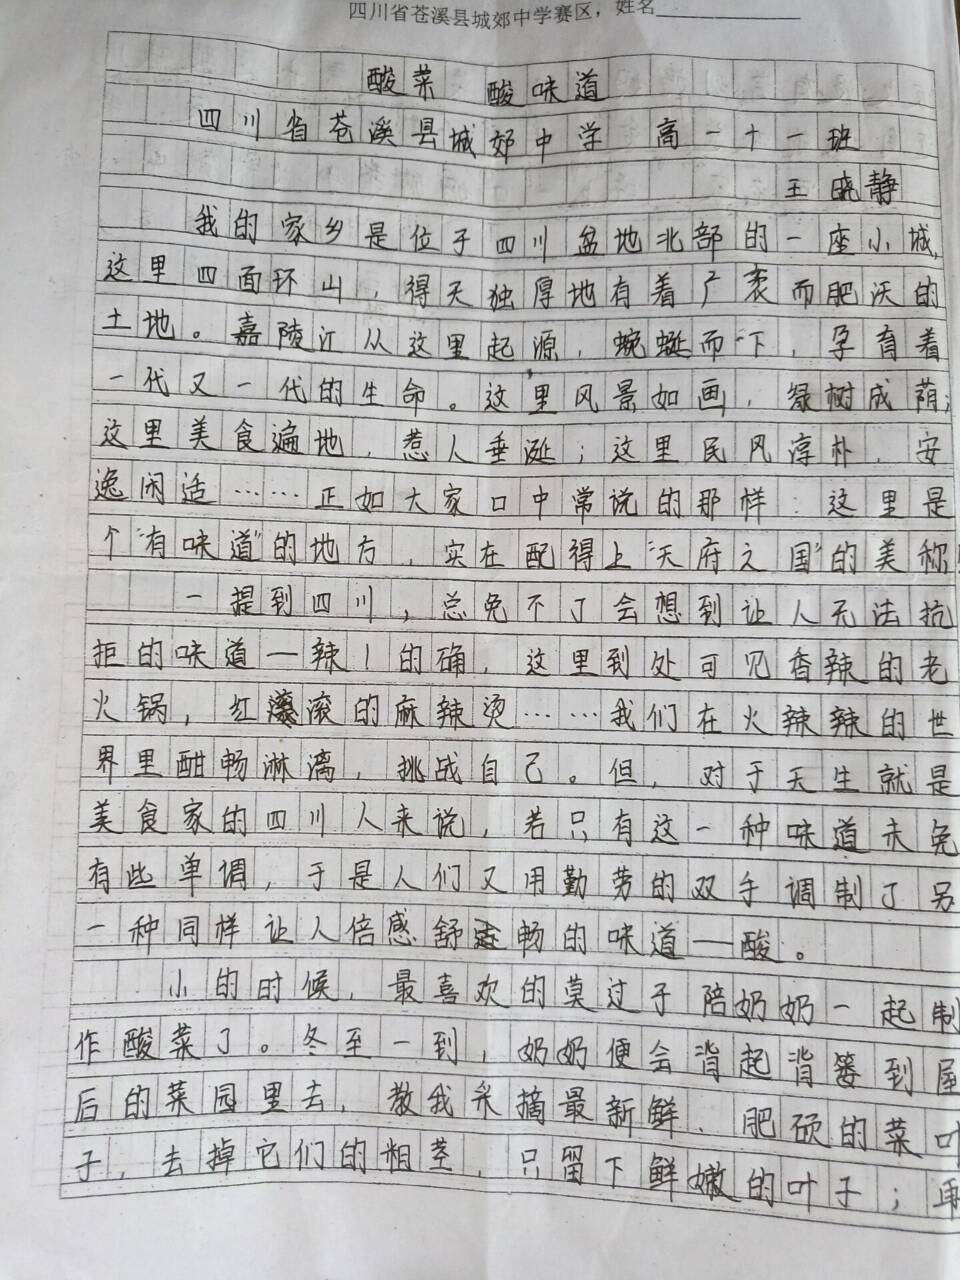 四川省苍溪县城郊中学赛区，姓名
酸菜 酸味道
四川省苍溪县城郊中学 高一十一班
王晓静
我的家乡是位于四川盆地北部的一座小城，
这里四面环山，得天独厚地有着广袤而肥沃的
土地。嘉陵江从这里起源，蜿蜒而下，孕育着
一代又一代的生命。这里风景如画，绿树成荫；
这里美食遍地，惹人垂涎；这里民风淳朴，安
逸闲适……正如大家口中常说的那样：这里是
个“有味道”的地方，实在配得上“天府之国”的美称
一提到四川，总免不了会想到让人无法抗
拒的味道—辣！的确，这里到处可见香辣的老
火锅，红滚滚的麻辣烫……我们在火辣辣的世
界里酣畅淋漓，挑战自己。但，对于天生就是
美食家的四川人来说，若只有这一种味道未免
有些单调，于是人们又用勤劳的双手调制了另
一种同样让人倍感舒畅的味道—酸。
小的时候，最喜欢的莫过于陪奶奶一起制
作酸菜了。冬至一到，奶奶便会背起背篓到屋
后的菜园里去，教我采摘最新鲜、肥硕的菜叶
子，去掉它们的粗茎，只留下鲜嫩的叶子；再